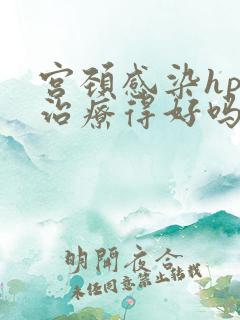 宫颈感染hp
治疗得好吗
明開夜合
未经同意禁止转载